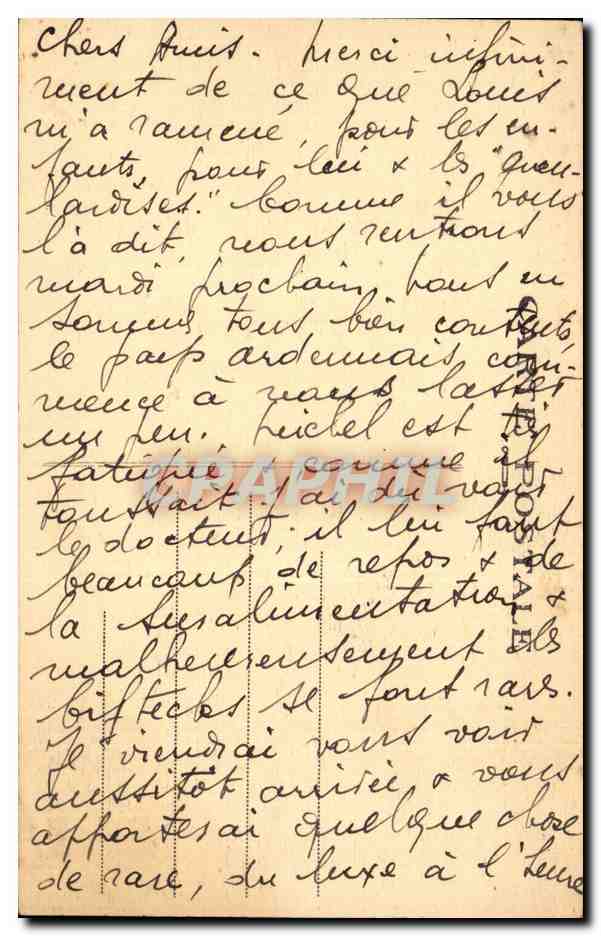 Chers Amis. Merci infini-
ment de ce que Louis
m'a ramené, pour les en-
fants, pour lui & les "gueu-
lardises." Comme il vous
l'a dit, nous rentrons
mardi prochain, nous en
sommes tous bien contents,
le pays ardennais com-
mence à nous lasser
un peu. Michel est très
fatigué & comme il
toussait j'ai dû voir
le docteur; il lui faut
beaucoup de repos & de
la suralimentation &
malheureusement les
biftecks se font rares.
Je viendrai vous voir
aussitôt arrivée & vous
apporterai quelque chose
de rare, du luxe à l'heure
CARTE POSTALE
CPAPHIL